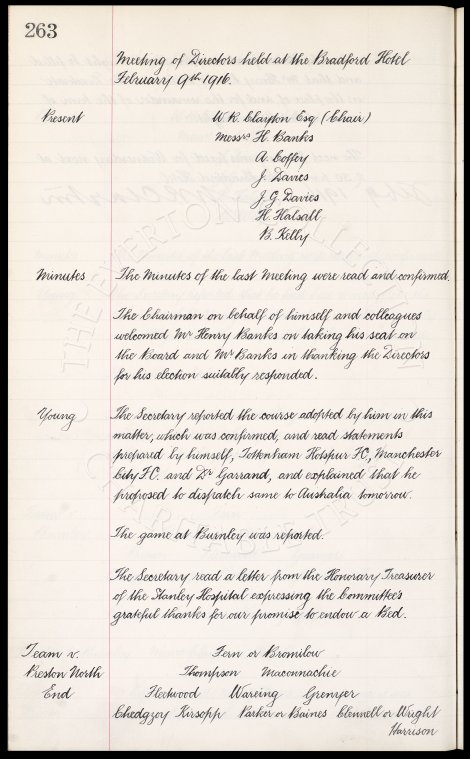 263
Meeting of Directors held at the Bradford Hotel
February 9th 1916.
Present
W.R. Clayton Esq (Chair)
Messrs H. Banks
A. Coffey
J. Davies
J.G. Davies
H. Halsall
B. Kelly
Minutes
The Minutes of the last Meeting were read and confirmed.
The Chairman on behalf of himself and colleagues
welcomed Mr Henry Banks on taking his seat on
the Board and Mr Banks in thanking the Directors
for his election suitably responded.
Young
The Secretary reported the course adopted by him in this
matter, which was confirmed, and read statements
prepared by himself, Tottenham Hotspur FC, Manchester
City F.C. and Dr Garrand, and explained that he
proposed to dispatch same to Australia tomorrow.
The game at Burnley was reported.
The Secretary read a letter from the Honorary Treasurer
of the Stanley Hospital expressing the Committee's
grateful thanks for our promise to endow a Bed.
Team v.
Preston North
End
Fern or Bromilow
Thompson Maconnachie
Fleetwood Wareing Grenyer
Chedgzoy Kirsopp Parker or Baines Clennell or Wright
Harrison
THE EVERTON COLLECTION
CHARITABLE TRUST